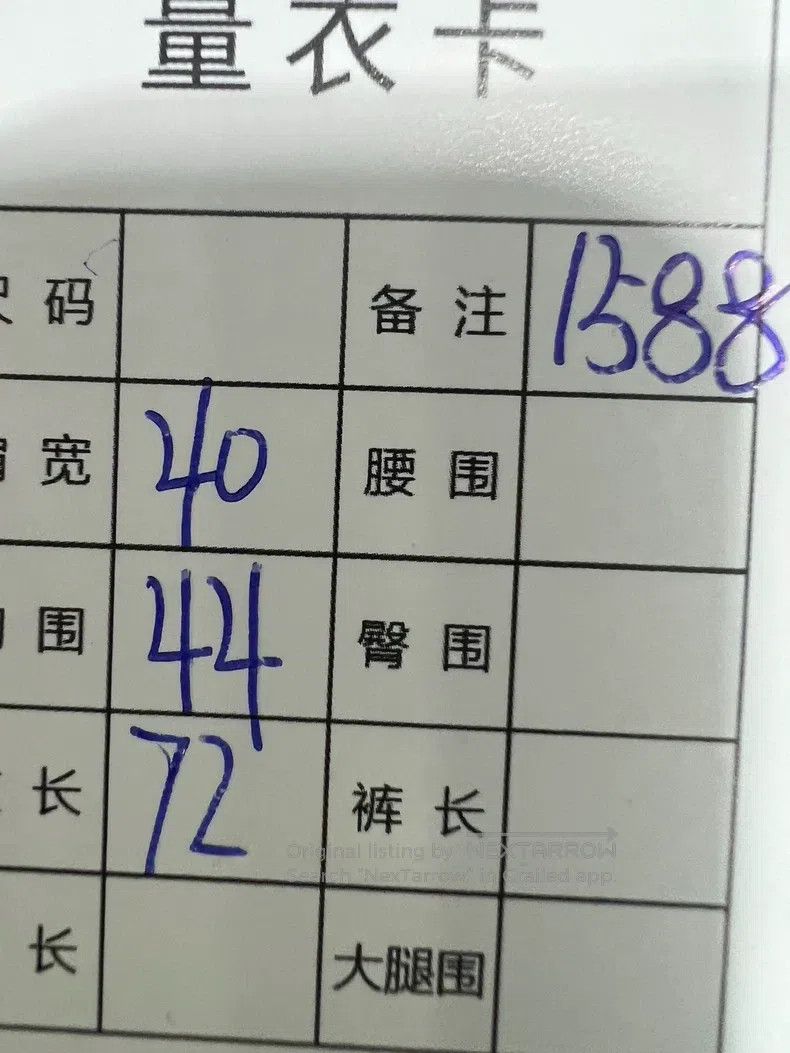 量衣卡
码 备注 1588
宽 40 腰围
围 44 臀围
长 72 裤长
长 大腿围
Original listing by NEXTARROW
Search "NexTarrow" in Grailed app.